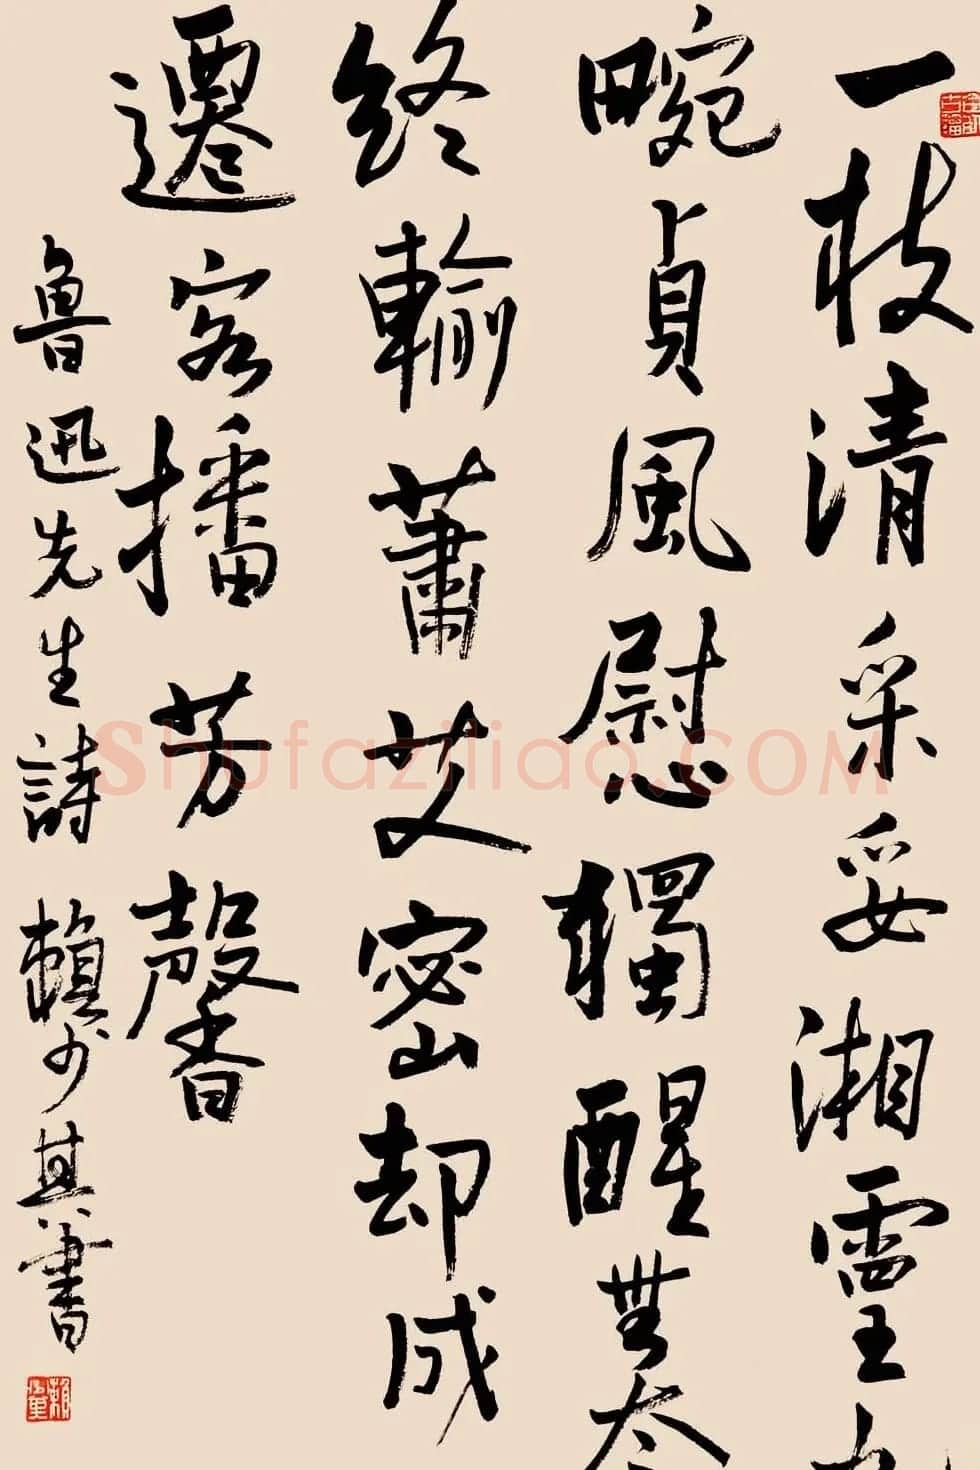 一枝清采妥湘靈九
畹貞風慰獨醒無奈
終輸蕭艾密却成
遷客播芳馨
魯迅先生詩 賴少其書
Shufaziliao.COM